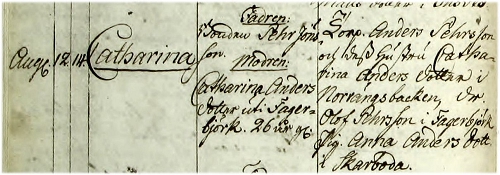 Aug. 12. 14. Catharina
Fadren:
Anders Pehrsons
son.
Modren:
Catharina Anders
dotter uti Fager-
björk. 26 år g.
Corp. Anders Pehrsson
och dess hustru Catha-
rina Anders dotter i
Norrängsbacken, Dr.
Olof Pehrsson i Fagerbjörk
Pig. Anna Anders dott.
i Skarboda.